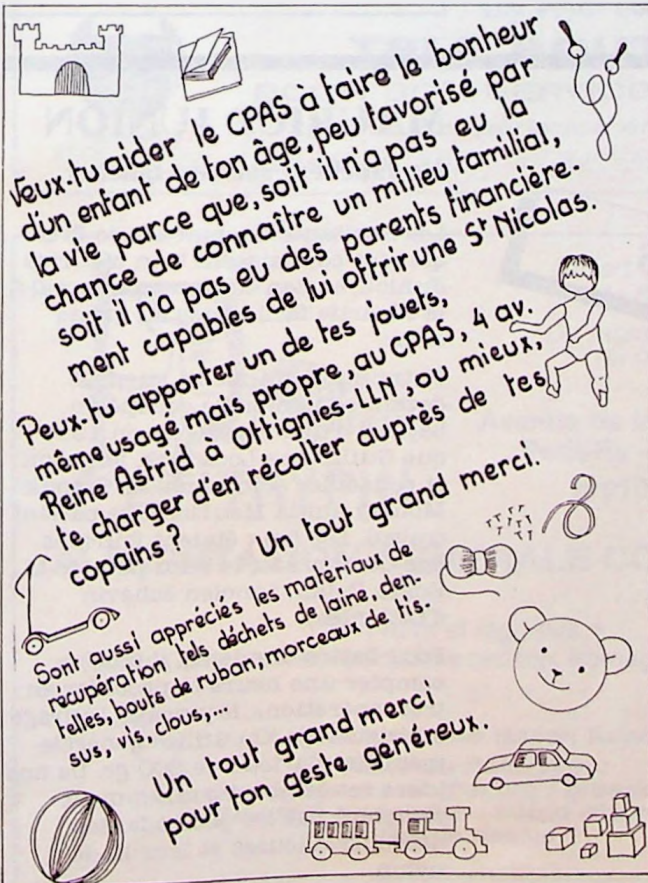 Veux-tu aider le CPAS à faire le bonheur
d'un enfant de ton âge, peu favorisé par
la vie parce que, soit il n'a pas eu la
chance de connaître un milieu familial,
soit il n'a pas eu des parents financière-
ment capables de lui offrir une St Nicolas.
Peux-tu apporter un de tes jouets,
même usagé mais propre, au CPAS, 4 av.
Reine Astrid à Ottignies-LLN, ou mieux,
te charger d'en récolter auprès de tes
copains ?
Un tout grand merci.
Sont aussi appréciés les matériaux de
récupération tels déchets de laine, den-
telles, bouts de ruban, morceaux de tis-
sus, vis, clous,...
Un tout grand merci
pour ton geste généreux.